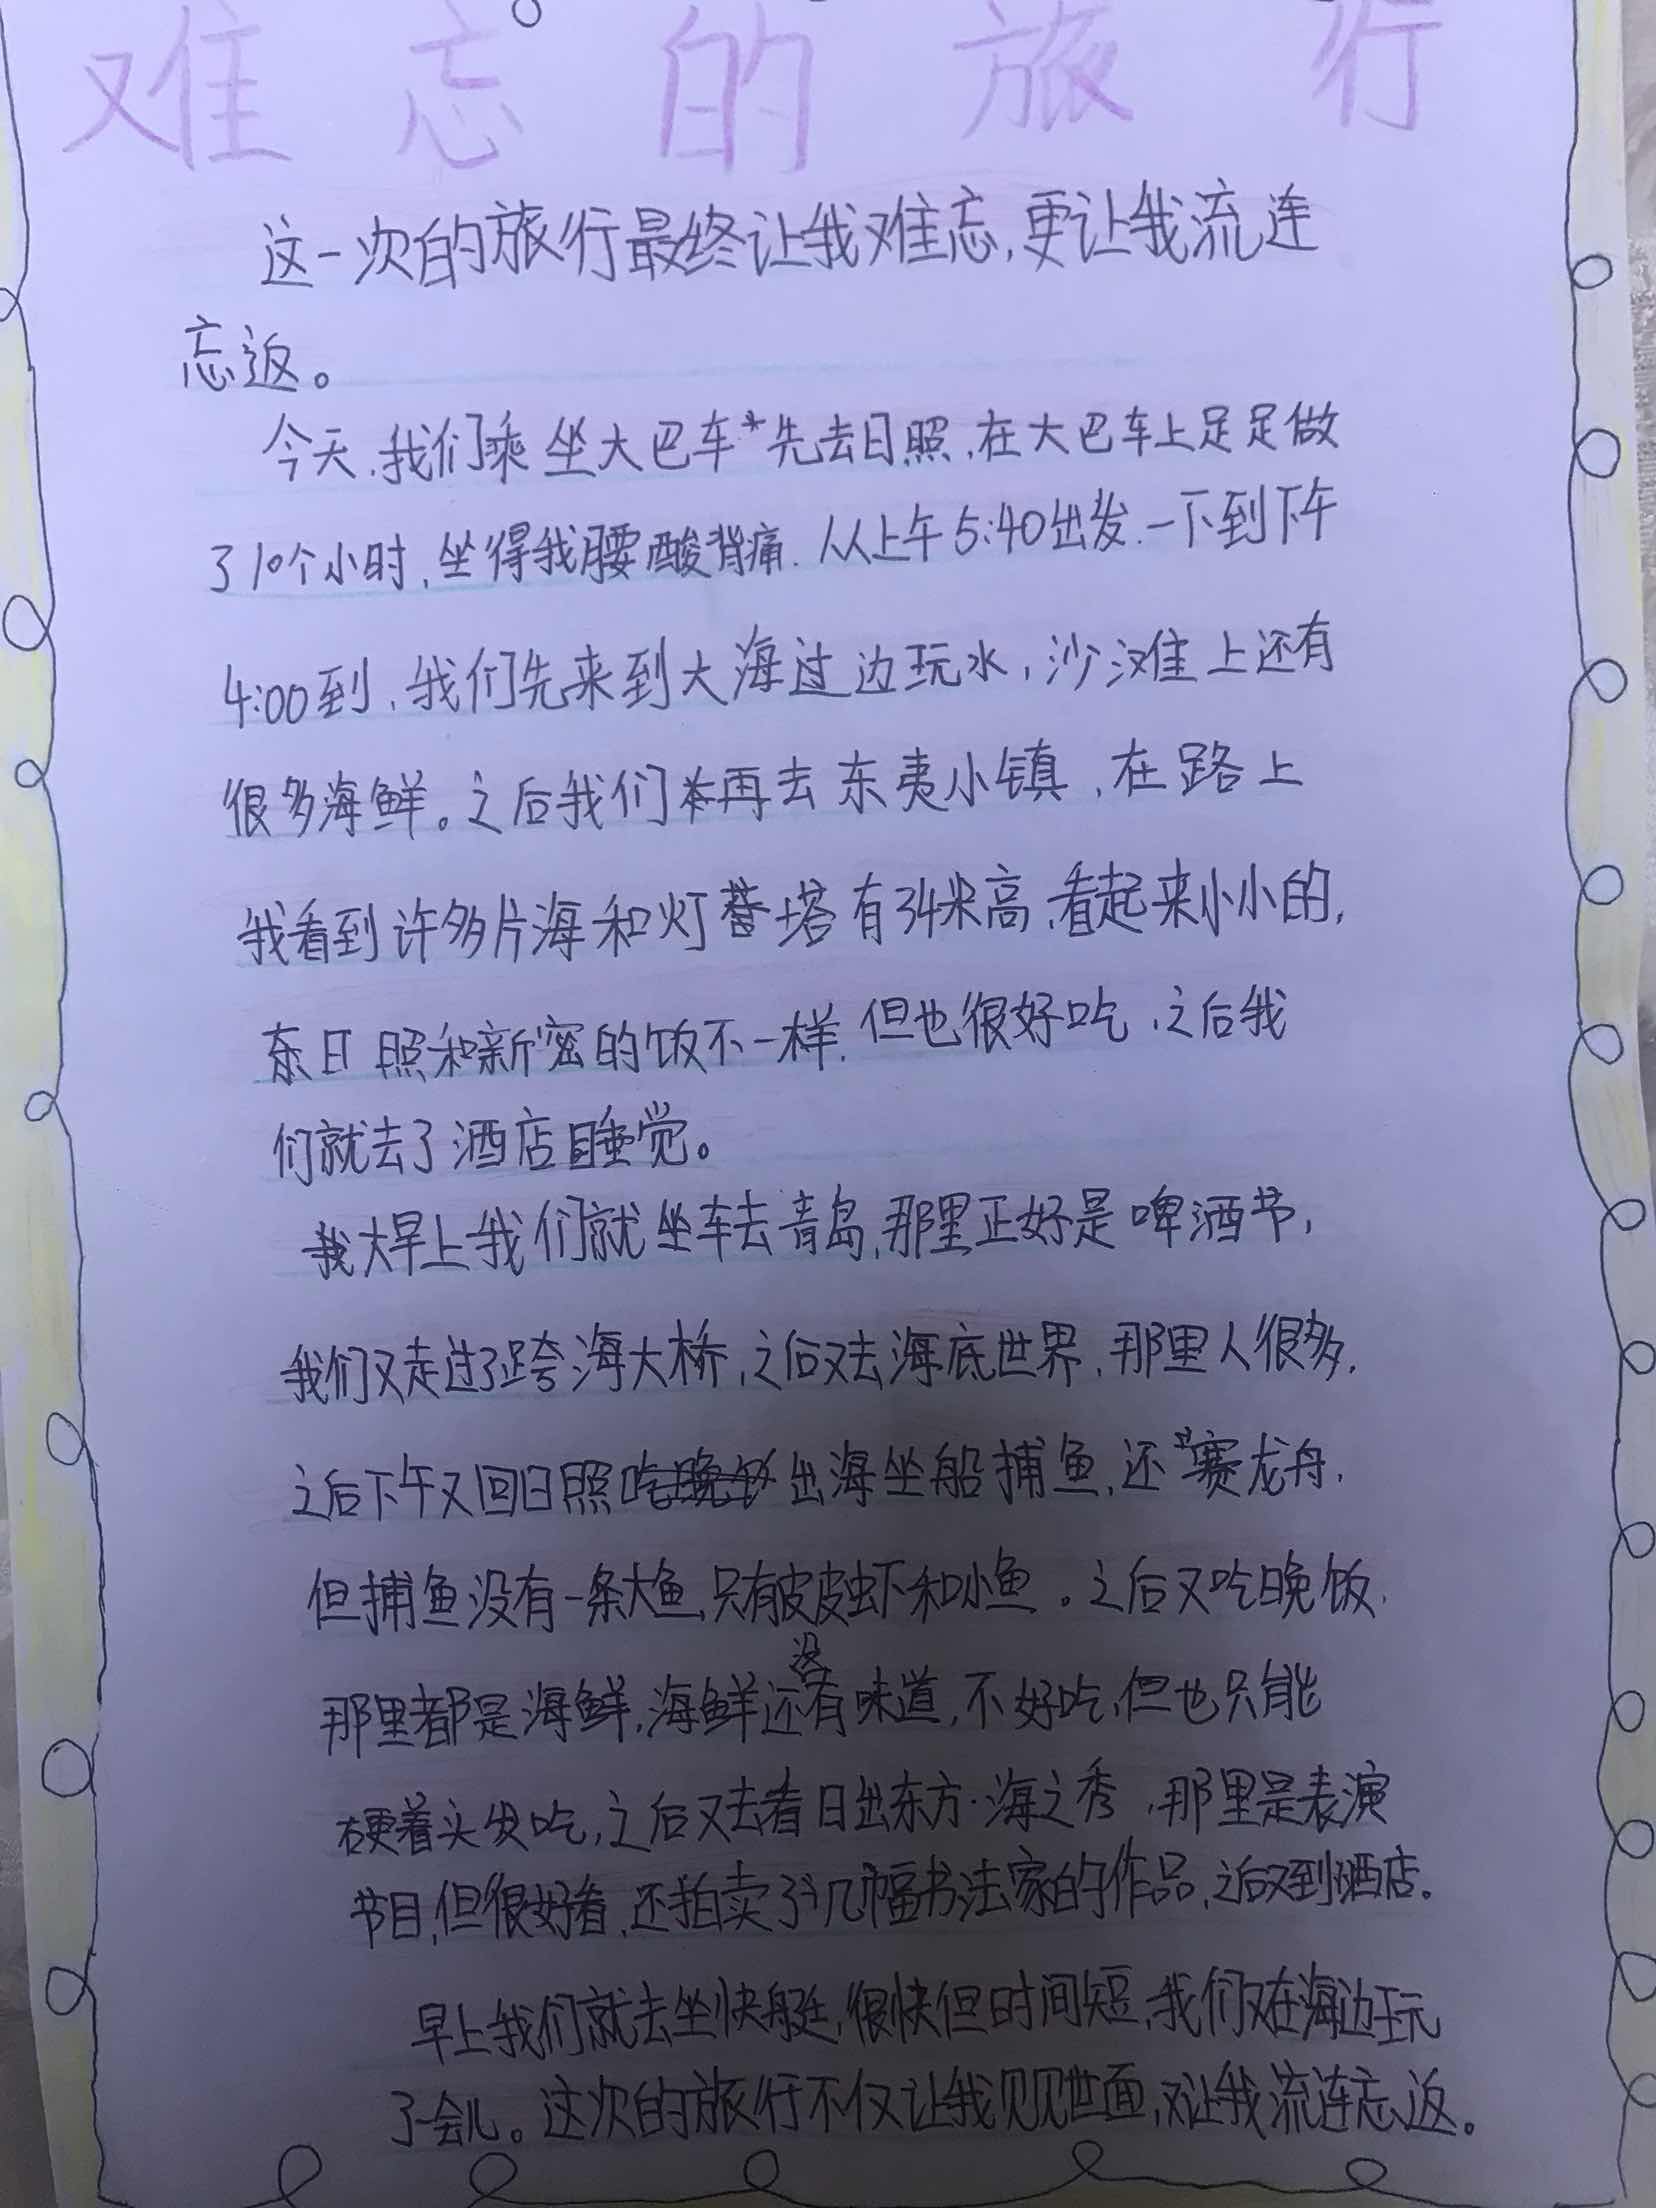 难忘的旅行
这一次的旅行最终让我难忘,更让我流连
忘返。
今天,我们乘坐大巴车先去日照,在大巴车上足足做
了10个小时,坐得我腰酸背痛.从上午5:40出发.一下到下午
4:00到,我们先来到大海过边玩水,沙滩上还有
很多海鲜。之后我们再去东夷小镇,在路上
我看到许多片海和灯塔有34米高,看起来小小的,
日照和新密的饭不一样.但也很好吃,之后我
们就去了酒店睡觉。
大早上我们就坐车去青岛,那里正好是啤酒节,
我们又走过了跨海大桥,之后又去海底世界,那里人很多,
之后下午又回日照出海坐船捕鱼,还赛龙舟,
但捕鱼没有一条大鱼,只有皮皮虾和小鱼。之后又吃晚饭,
那里都是海鲜,海鲜还没有味道,不好吃,但也只能
硬着头发吃,之后又去看日出东方·海之秀,那里是表演
节目,但很好看,还拍卖了几幅书法家的作品,之后又到酒店。
早上我们就去坐快艇,很快但时间短,我们又在海边玩
了一会儿。这次的旅行不仅让我见见世面,又让我流连忘返。